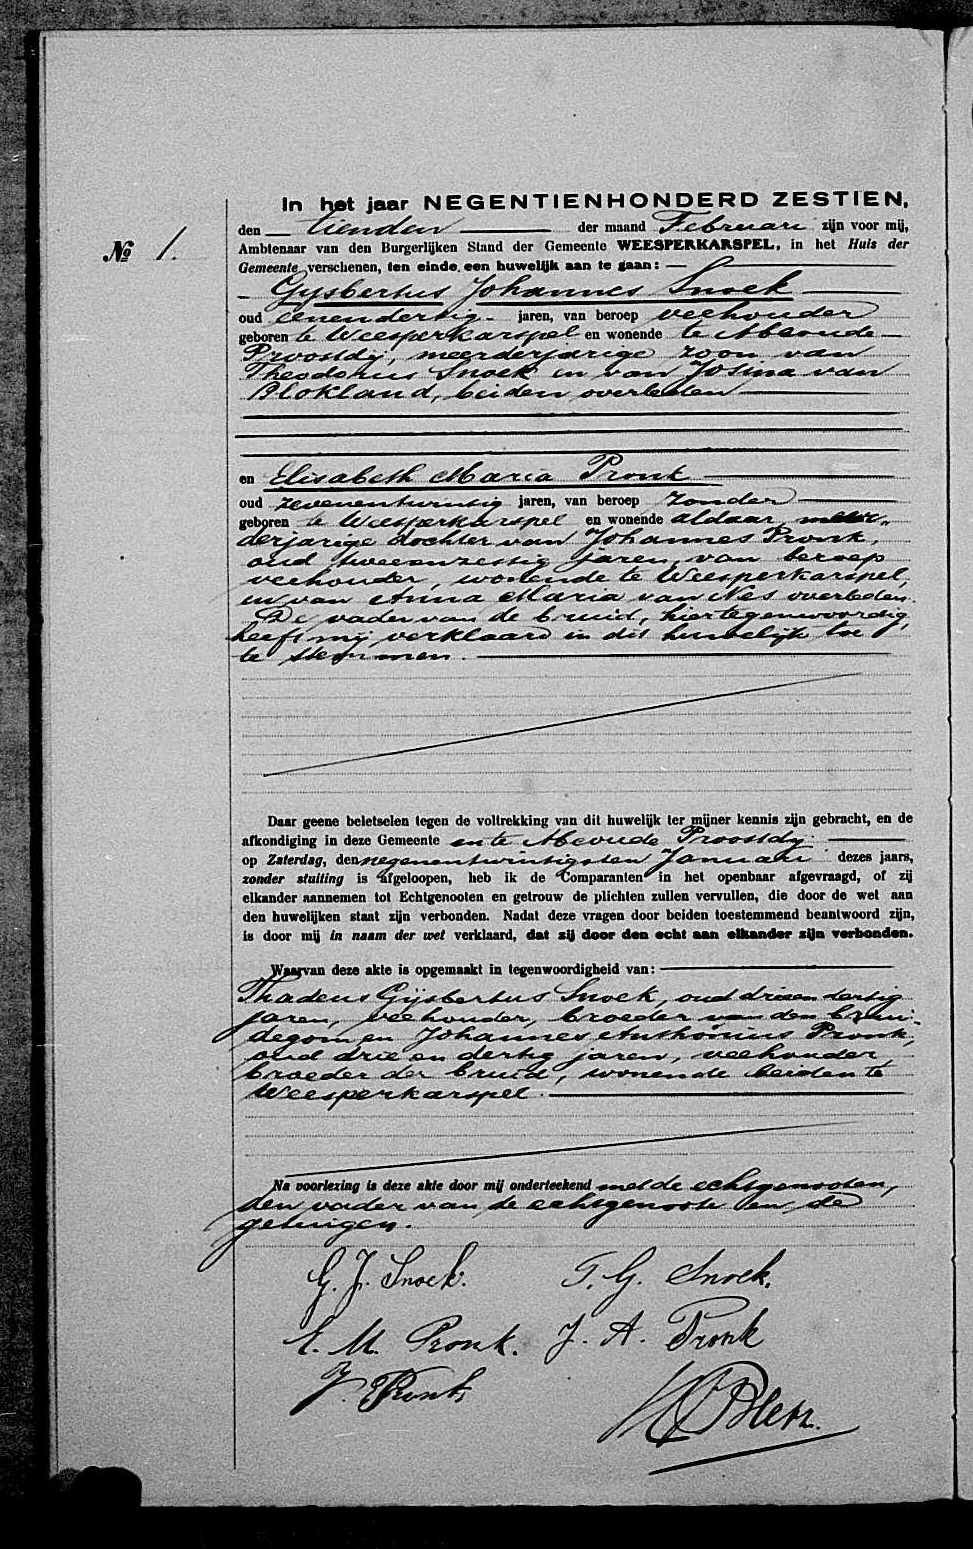 In het jaar NEGENTIENHONDERD ZESTIEN,
den tienden der maand Februari zijn voor mij,
№ 1.
Ambtenaar van den Burgerlijken Stand der Gemeente WEESPERKARSPEL, in het Huis der
Gemeente verschenen, ten einde een huwelijk aan te gaan:
Gijsbertus Johannes Snoek
oud eenendertig jaren, van beroep veehouder
geboren te Weesperkarspel en wonende te Abcoude
Proostdij, meerderjarige zoon van
Theodorus Snoek en van Josina van
Blokland, beiden overleden
en Elisabeth Maria Pronk
oud zevenentwintig jaren, van beroep zonder
geboren te Weesperkarspel en wonende aldaar, meer„
derjarige dochter van Johannes Pronk,
oud tweeenzestig jaren, van beroep
veehouder, wonende te Weesperkarspel,
en van Anna Maria van Nes overleden.
De vader van de bruid, hiertegenwoordig,
heeft mij verklaard in dit huwelijk toe
te stemmen.
Daar geene beletselen tegen de voltrekking van dit huwelijk ter mijner kennis zijn gebracht, en de
afkondiging in deze Gemeente en te Abcoude Proostdij
op Zaterdag, den negenentwintigsten Januari dezes jaars,
zonder stuiting is afgeloopen, heb ik de Comparanten in het openbaar afgevraagd, of zij
elkander aannemen tot Echtgenooten en getrouw de plichten zullen vervullen, die door de wet aan
den huwelijken staat zijn verbonden. Nadat deze vragen door beiden toestemmend beantwoord zijn,
is door mij in naam der wet verklaard, dat zij door den echt aan elkander zijn verbonden.
Waarvan deze akte is opgemaakt in tegenwoordigheid van:
Thadeus Gijsbertus Snoek, oud drieendertig
jaren, veehouder, broeder van den brui-
degom en Johannes Anthonius Pronk,
oud drie en dertig jaren, veehouder,
broeder der bruid, wonende beiden te
Weesperkarspel.
Na voorlezing is deze akte door mij onderteekend met de echtgenooten,
den vader van de echtgenoote en de
getuigen.
G. J. Snoek. T. G. Snoek.
E. M. Pronk. J. A. Pronk
J. Pronk